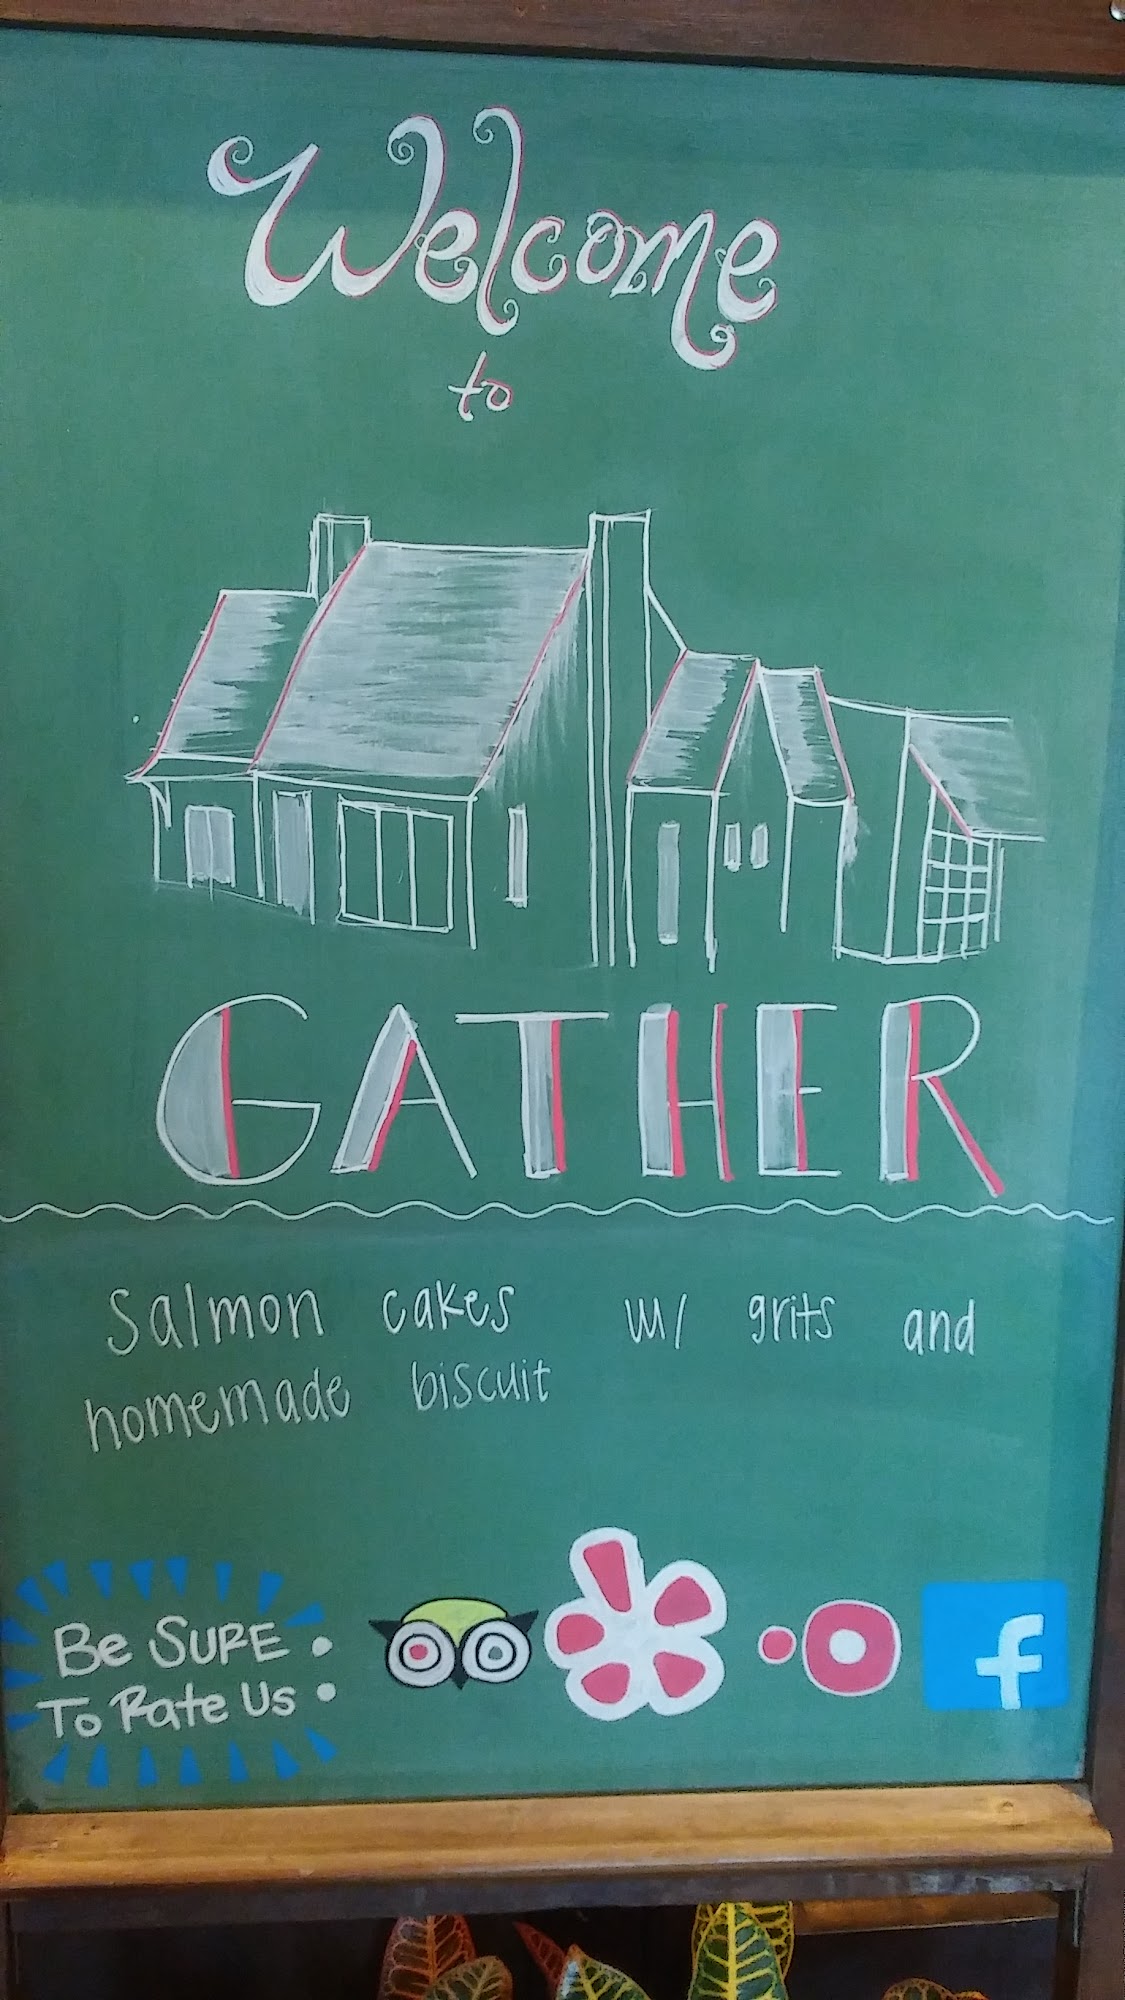 Welcome
to
GATHER
Salmon cakes w/ grits and
homemade biscuit
Be SURE :
To Rate Us
f